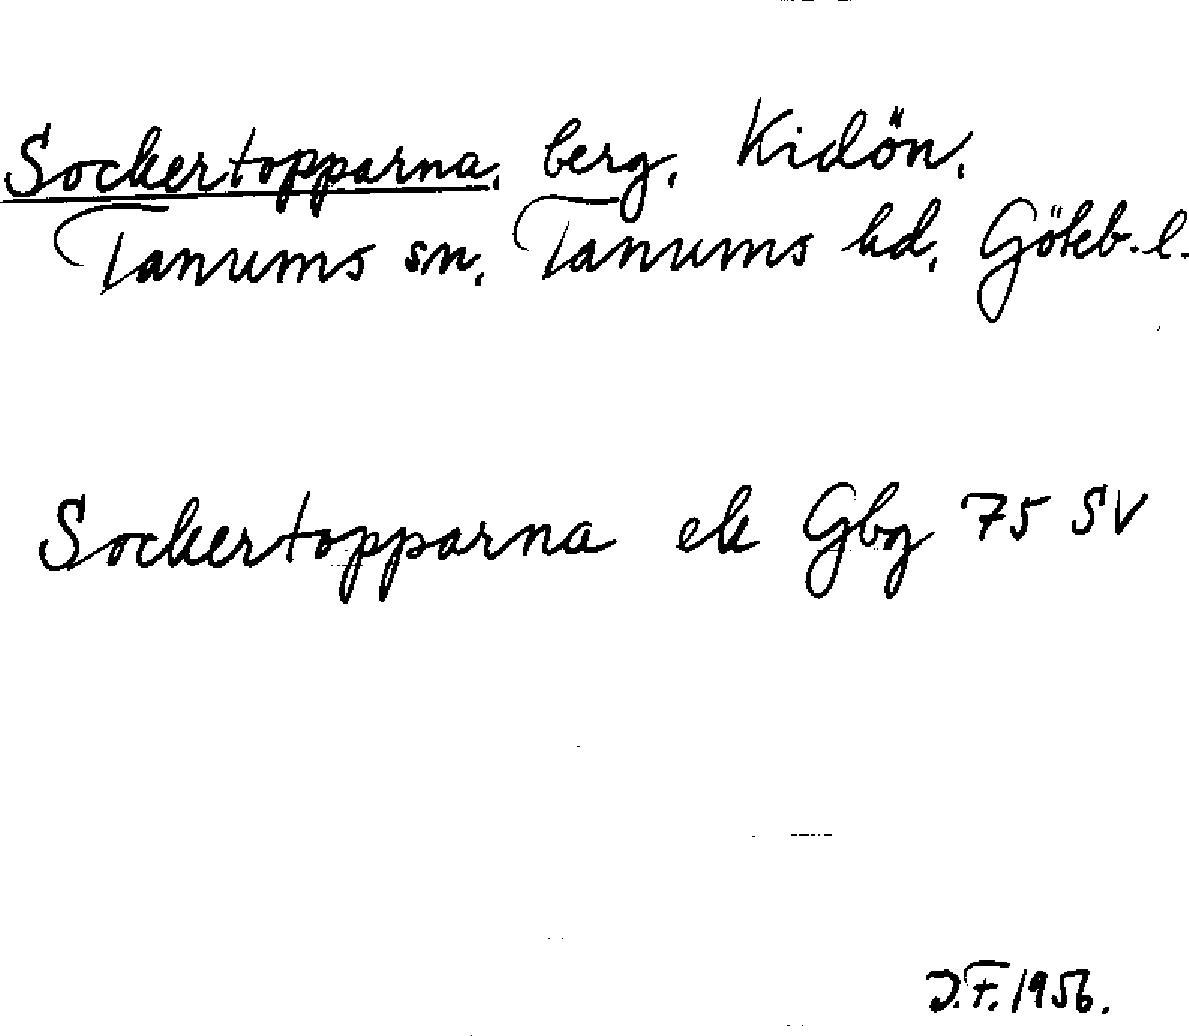 Sockertopparna, berg, Kidön,
Tanums sn, Tanums hd, Göteb. l.
Sockertopparna ek Gbg 75 SV
J.F. 1956.